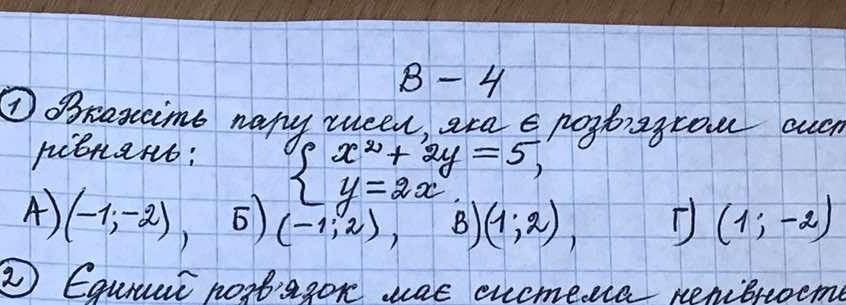 В - 4
1 Вкажіть пару чисел, яка є розв'язком сист
рівнянь: { x² + 2y = 5,
y = 2x
А) (-1; -2), Б) (-1; 2), В) (1; 2), Г) (1; -2)
2 Єдиний розв'язок має система нерівносте